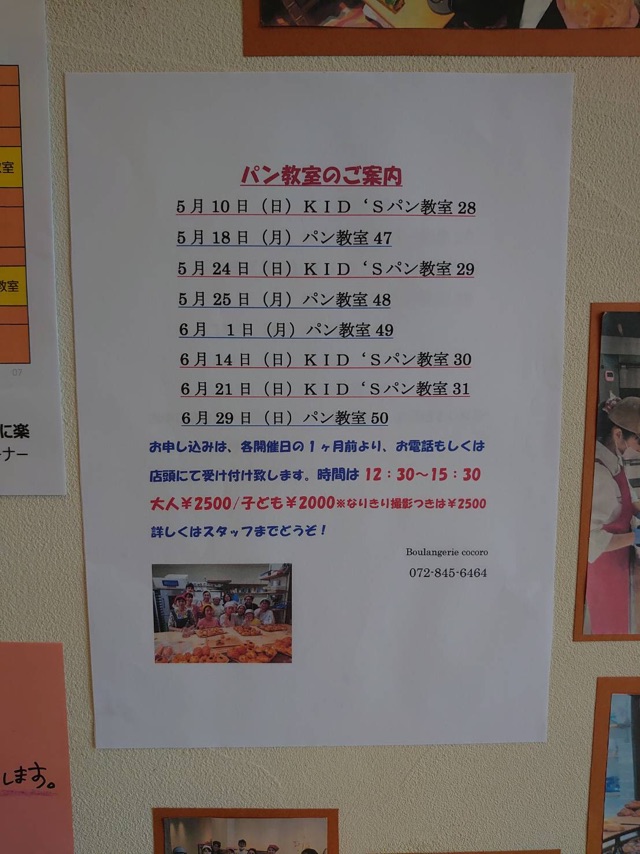 パン教室のご案内
5月10日（日）ＫＩＤ‘Ｓパン教室28
5月18日（月）パン教室47
5月24日（日）ＫＩＤ‘Ｓパン教室29
5月25日（月）パン教室48
6月　1日（月）パン教室49
6月14日（日）ＫＩＤ‘Ｓパン教室30
6月21日（日）ＫＩＤ‘Ｓパン教室31
6月29日（日）パン教室50
お申し込みは、各開催日の1ヶ月前より、お電話もしくは
店頭にて受け付け致します。時間は 12：30～15：30
大人￥2500/子ども￥2000※なりきり撮影つきは￥2500
詳しくはスタッフまでどうぞ！
Boulangerie cocoro
072-845-6464
教室
教室
07
に楽
ーナー
します。